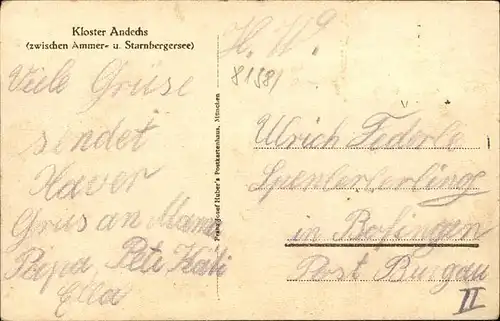 Kloster Andechs
(zwischen Ammer- u. Starnbergersee)
Viele Grüse
sendet
Xaver
Grus an Mama
Papa, Peti Kati
Ella
Franz Josef Huber's Postkartenhaus, München
H. W.
8158/
Ulrich Federle
in Bofingen
Post Burgau
II